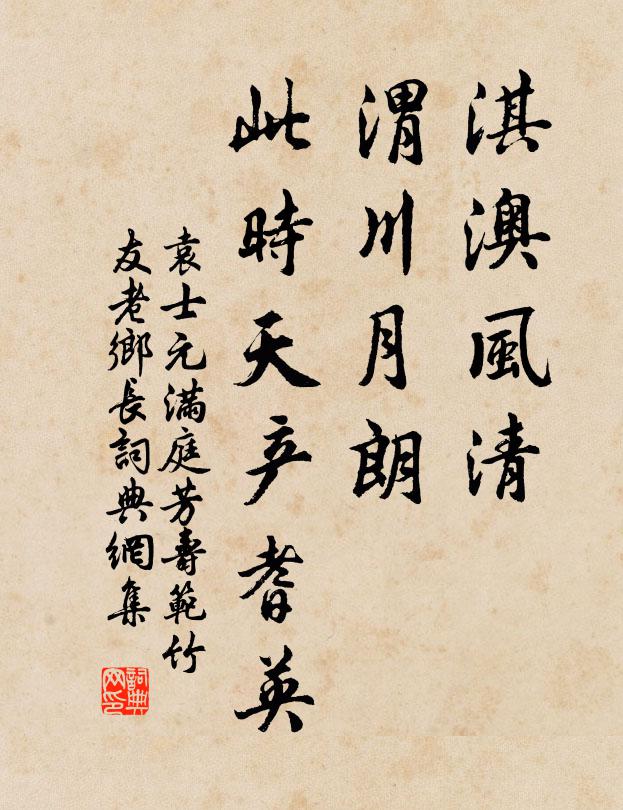 淇澳風清
渭川月朗
此時天产耆英
袁士元滿庭芳壽範竹
友老鄉長詞典網集
詞典网印